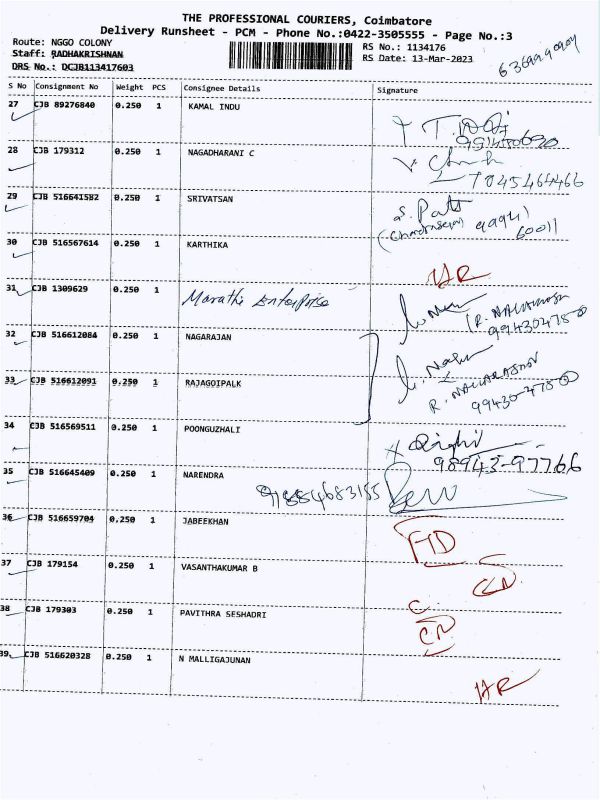 THE PROFESSIONAL COURIERS, Coimbatore
Delivery Runsheet - PCM - Phone No.:0422-3505555 - Page No.:3
Route: NGGO COLONY
RS No.: 1134176
Staff: RADHAKRISHNAN
RS Date: 13-Mar-2023
DRS No.: DCJB113417603
S No Consignment No Weight PCS Consignee Details Signature
27 CJB 89276840 0.250 1 KAMAL INDU
28 CJB 179312 0.250 1 NAGADHARANI C
7045464466
29 CJB 516641582 0.250 1 SRIVATSAN
99941
60011
30 CJB 516567614 0.250 1 KARTHIKA
HR
31 CJB 1309629 0.250 1 Marathi Enterprise
32 CJB 516612084 0.250 1 NAGARAJAN
33 CJB 516612091 0.250 1 RAJAGOIPALK
34 CJB 516569511 0.250 1 POONGUZHALI
98943-97766
35 CJB 516645409 0.250 1 NARENDRA
36 CJB 516659704 0.250 1 JABEEKHAN
37 CJB 179154 0.250 1 VASANTHAKUMAR B
38 CJB 179303 0.250 1 PAVITHRA SESHADRI
39 CJB 516620328 0.250 1 N MALLIGAJUNAN
HR